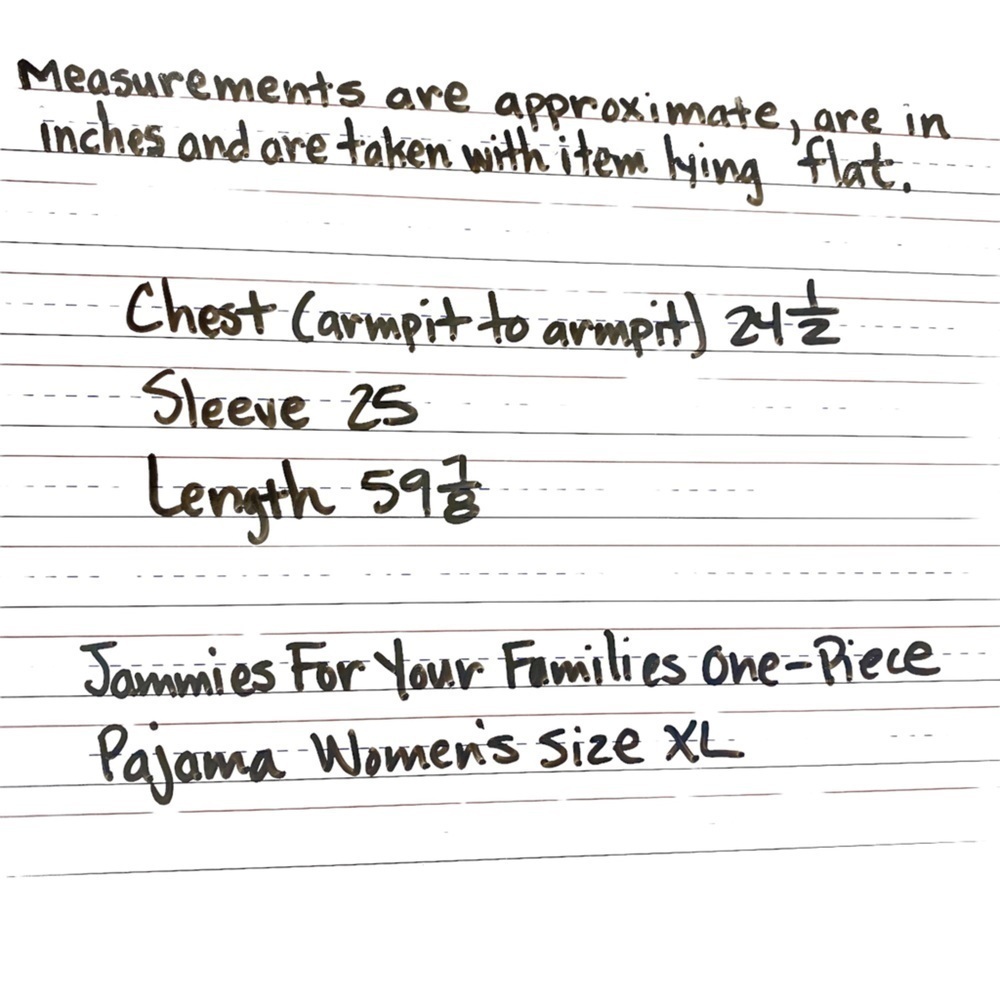 Measurements are approximate, are in
inches and are taken with item lying flat.
Chest (armpit to armpit) 24 1/2
Sleeve 25
Length 59 7/8
Jammies For Your Families One-Piece
Pajama Women's Size XL